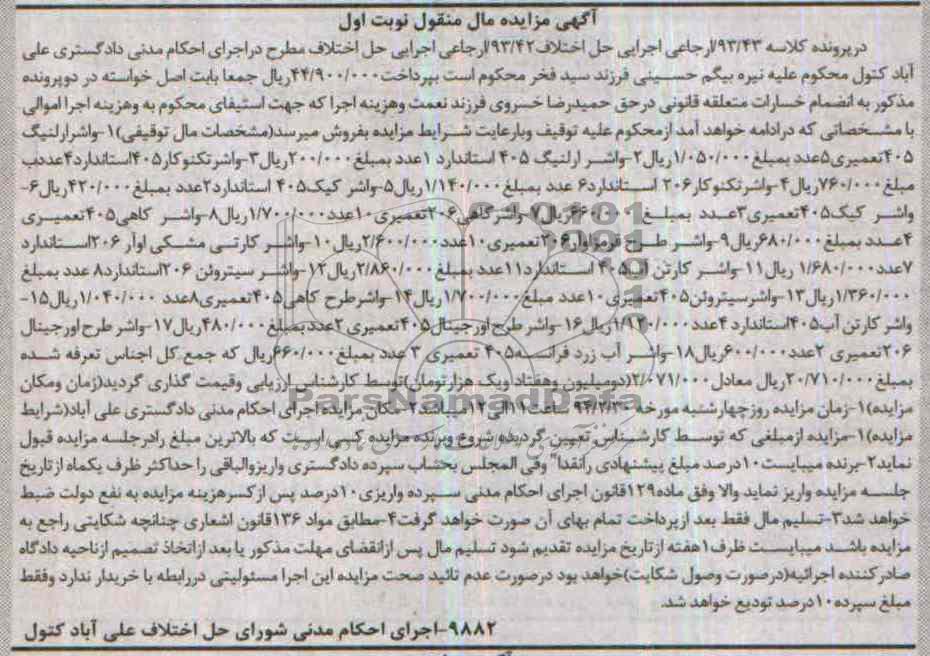 آگهی مزایده مال منقول نوبت اول
درپرونده کلاسه ۹۳/۴۳/ارجاعی اجرایی حل اختلاف۹۳/۴۲/ارجاعی اجرایی حل اختلاف مطرح دراجرای احکام مدنی دادگستری علی
آباد کتول محکوم علیه نیره بیگم حسینی فرزند سید فخر محکوم است بپرداخت۴۴/۹۰۰/۰۰۰ریال جمعا بابت اصل خواسته در دوپرونده
مذکور به انضمام خسارات متعلقه قانونی درحق حمیدرضا خسروی فرزند نعمت وهزینه اجرا که جهت استیفای محکوم به وهزینه اجرا اموالی
با مشخصاتی که درادامه خواهد آمد ازمحکوم علیه توقیف وبارعایت شرایط مزایده بفروش میرسد(مشخصات مال توقیفی)۱-واشرارلنیگ
۴۰۵تعمیری۵عدد بمبلغ۱/۰۵۰/۰۰۰ریال۲-واشر ارلنیگ ۴۰۵ استاندارد ۱عدد بمبلغ۲۰۰/۰۰۰ریال۳-واشرتکنوکار۴۰۵استاندارد۴عددب
مبلغ۷۶۰/۰۰۰ریال۴-واشرتکنوکار۲۰۶ استاندارد۶ عدد بمبلغ۱/۱۴۰/۰۰۰ریال۵-واشر کیک۴۰۵ استاندارد۲عدد بمبلغ۴۲۰/۰۰۰ریال۶-
واشر کیک۴۰۵تعمیری۳عدد بمبلغ ۶۶۰/۰۰۰ریال۷-واشرگاهی۲۰۶تعمیری۱۰عدد۱/۷۰۰/۰۰۰ریال۸-واشر کاهی۴۰۵تعمیری
۴عدد بمبلغ۶۸۰/۰۰۰ریال۹-واشر طرح قرمزاوار۲۰۶تعمیری۱۰عدد۲/۶۰۰/۰۰۰ریال۱۰-واشر کارتی مشکی اوآر ۲۰۶استاندارد
۷عدد۱/۶۸۰/۰۰۰ ریال۱۱-واشر کارتن آب۴۰۵ استاندارد۱۱عدد بمبلغ۲/۸۶۰/۰۰۰ریال۱۲-واشر سیتروئن ۲۰۶استاندارد۸ عدد بمبلغ
۱/۳۶۰/۰۰۰ریال۱۳-واشرسیتروئن۴۰۵تعمیری۱۰عدد مبلغ۱/۷۰۰/۰۰۰ریال۱۴-واشرطرح کاهی۴۰۵تعمیری۸عدد ۱/۰۴۰/۰۰۰ریال۱۵-
واشر کارتن آب۴۰۵استاندارد ۴عدد۱/۱۲۰/۰۰۰ریال۱۶-واشر طرح اورجینال۴۰۵تعمیری ۲عدد بمبلغ۴۸۰/۰۰۰ریال۱۷-واشر طرح اورجینال
۲۰۶تعمیری ۲عدد۶۰۰/۰۰۰ریال۱۸-واشر آب زرد فرانسه۴۰۵ تعمیری ۳ عدد بمبلغ۶۶۰/۰۰۰ریال که جمع کل اجناس تعرفه شده
بمبلغ۲۰/۷۱۰/۰۰۰ریال معادل۲/۰۷۱/۰۰۰(دومیلیون وهفتاد ویک هزارتومان)توسط کارشناس ارزیابی وقیمت گذاری گردید(زمان ومکان
مزایده)۱-زمان مزایده روزچهارشنبه مورخه ۹۴/۲/۳۰ ساعت۱۱الی۱۲میباشد۲-مکان مزایده اجرای احکام مدنی دادگستری علی آباد(شرایط
مزایده)۱-مزایده ازمبلغی که توسط کارشناس تعیین گردیده شروع وبرنده مزایده کسی است که بالاترین مبلغ رادرجلسه مزایده قبول
نماید۲-برنده میبایست۱۰درصد مبلغ پیشنهادی رانقدا" وفی المجلس بحساب سپرده دادگستری واریزوالباقی را حداکثر ظرف یکماه ازتاریخ
جلسه مزایده واریز نماید والا وفق ماده۱۲۹قانون اجرای احکام مدنی سپرده واریزی۱۰درصد پس ازکسرهزینه مزایده به نفع دولت ضبط
خواهد شد۳-تسلیم مال فقط بعد ازپرداخت تمام بهای آن صورت خواهد گرفت۴-مطابق مواد ۱۳۶قانون اشعاری چنانچه شکایتی راجع به
مزایده باشد میبایست ظرف۱هفته ازتاریخ مزایده تقدیم شود تسلیم مال پس ازانقضای مهلت مذکور یا بعد ازاتخاذ تصمیم ازناحیه دادگاه
صادرکننده اجرائیه(درصورت وصول شکایت)خواهد بود درصورت عدم تائید صحت مزایده این اجرا مسئولیتی دررابطه با خریدار ندارد وفقط
مبلغ سپرده۱۰درصد تودیع خواهد شد.
۹۸۸۲-اجرای احکام مدنی شورای حل اختلاف علی آباد کتول
ParsNamadData